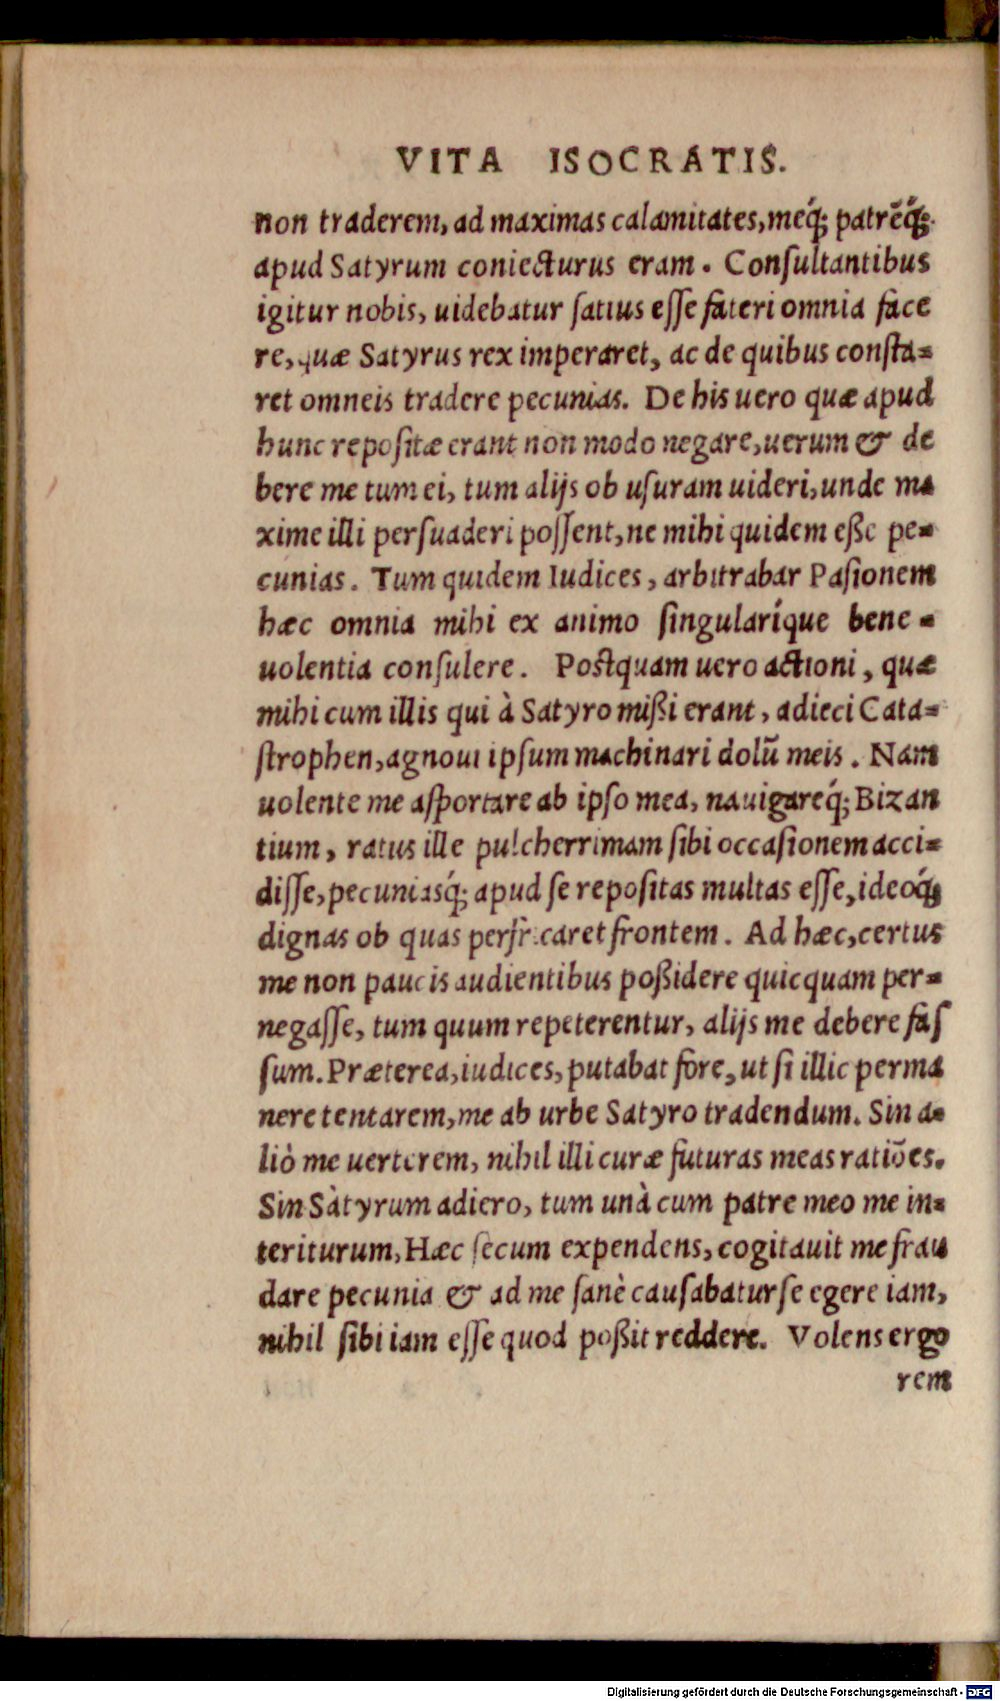 VITA ISOCRATIS.
non traderem, ad maximas calamitates, meq́; patrēq́;
apud Satyrum coniecturus eram. Conſultantibus
igitur nobis, uidebatur ſatius eſſe fateri omnia face
re, quæ Satyrus rex imperaret, ac de quibus conſta=
ret omneis tradere pecunias. De his uero quæ apud
hunc repoſitæ erant non modo negare, uerum & de
bere me tum ei, tum alijs ob uſuram uideri, unde ma
xime illi perſuaderi poſſent, ne mihi quidem eße pe=
cunias. Tum quidem Iudices, arbitrabar Paſionem
hæc omnia mihi ex animo ſingularíque bene=
uolentia conſulere. Postquam uero actioni, quæ
mihi cum illis qui à Satyro mißi erant, adieci Cata=
ſtrophen, agnoui ipſum machinari dolū meis. Nam
uolente me aſportare ab ipſo mea, nauigareq́; Bizan
tium, ratus ille pulcherrimam ſibi occaſionem acci=
diſſe, pecuniasq́; apud ſe repoſitas multas eſſe, ideoq́;
dignas ob quas perfricaret frontem. Ad hæc, certus
me non paucis audientibus poßidere quicquam per=
negaſſe, tum quum repeterentur, alijs me debere faſ
ſum. Præterea, iudices, putabat fore, ut ſi illic perma
nere tentarem, me ab urbe Satyro tradendum. Sin a=
liò me uerterem, nihil illi curæ futuras meas ratiōes.
Sin Sàtyrum adiero, tum unà cum patre meo me in=
teriturum, Hæc ſecum expendens, cogitauit me frau
dare pecunia & ad me ſanè cauſabatur ſe egere iam,
nihil ſibi iam eſſe quod poßit reddere. Volens ergo
rem
Digitalisierung gefördert durch die Deutsche Forschungsgemeinschaft - DFG